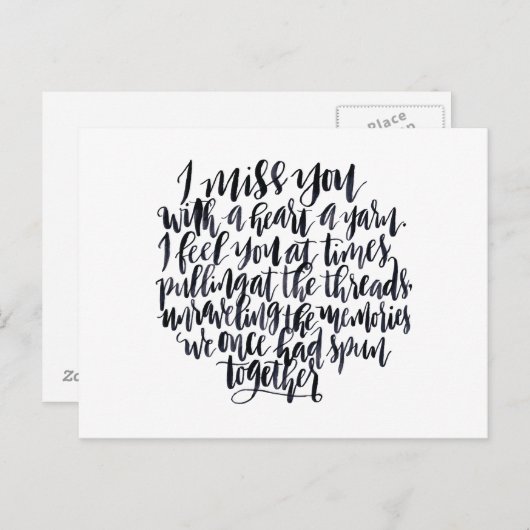 Place
I miss you
with a heart a yarn.
I feel you at times,
pulling at the threads,
unraveling the memories
we once had spun
together